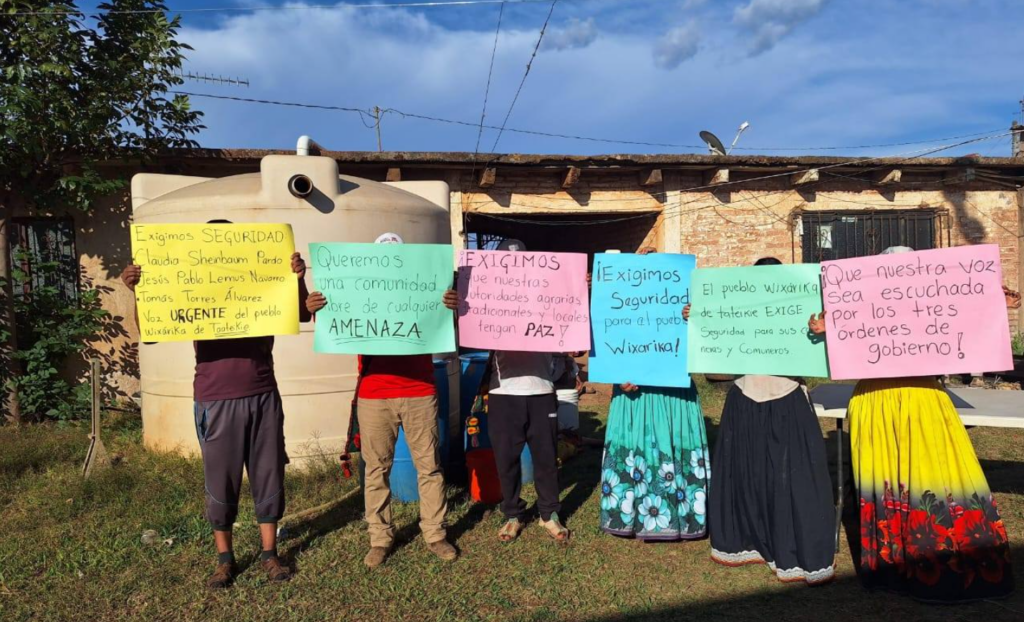 Exigimos SEGURIDAD
Claudia Sheinbaum Pardo
Jesús Pablo Lemus Navarro
Tomás Torres Álvarez
Voz URGENTE del pueblo
Wixárika de Tateikie
Queremos
una comunidad
libre de cualquier
AMENAZA
¡EXIGIMOS
que nuestras
autoridades agrarias
tradicionales y locales
tengan PAZ!
¡Exigimos
Seguridad
para el pueblo
Wixarika!
El pueblo Wixárika
de tateikie EXIGE
Seguridad para sus
neras y Comuneros
¡Que nuestra voz
sea escuchada
por los tres
órdenes de
gobierno!